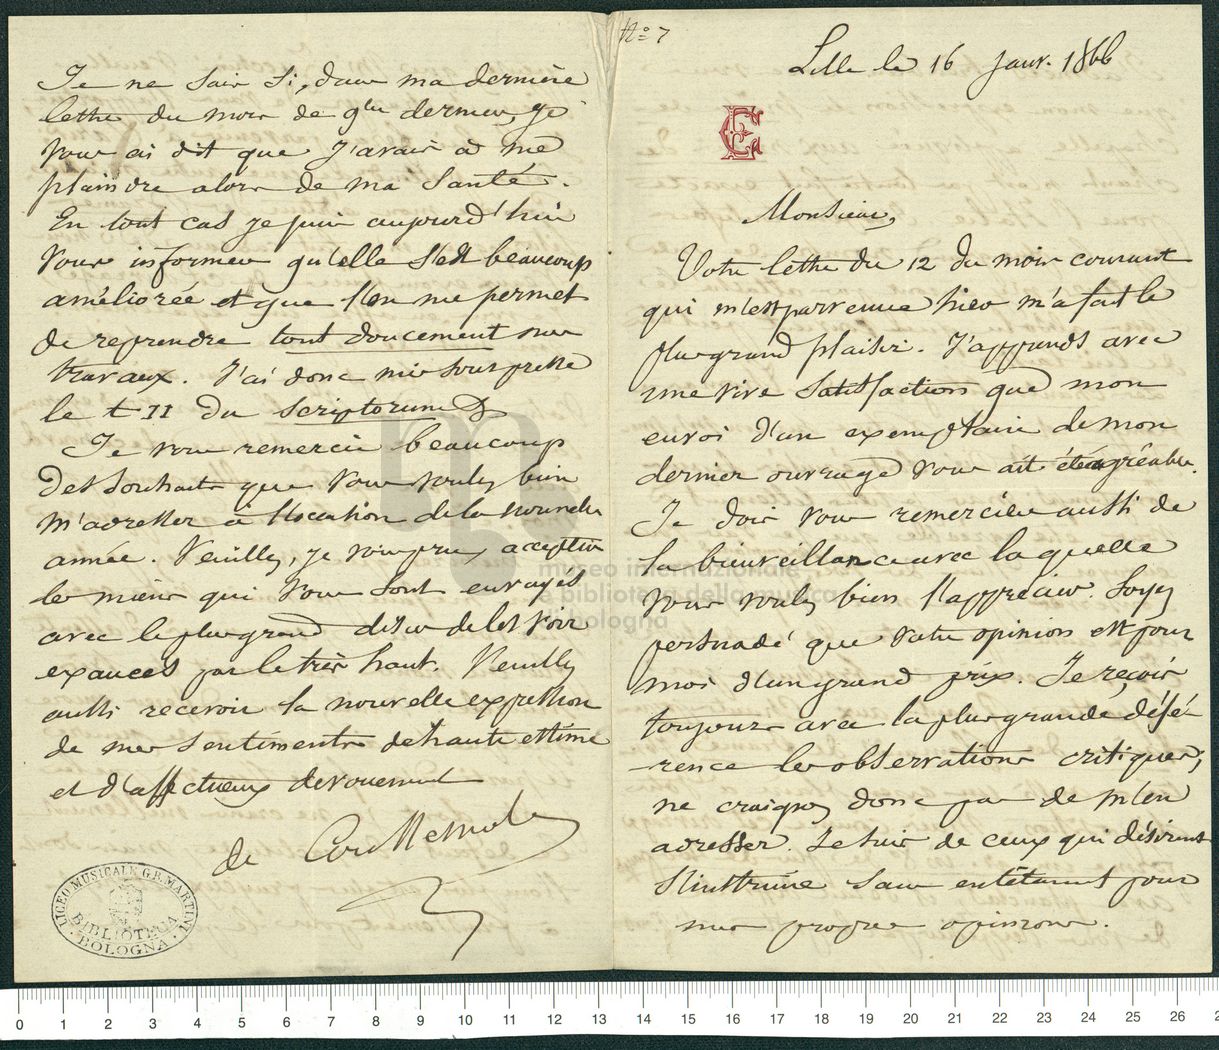 No 7
Lille le 16 janv. 1866
Monsieur,
Votre lettre du 12 du mois courant
qui m'est parvenue hier m'a fait le
plus grand plaisir. J'apprends avec
une vive satisfaction que mon
envoi d'un exemplaire de mon
dernier ouvrage vous ait été agréable.
Je dois vous remercier aussi de
la bienveillance avec laquelle
vous voulez bien l'apprécier. Soyez
persuadé que votre opinion est pour
moi d'un grand prix. Je reçois
toujours avec la plus grande défé-
rence les observations critiques;
ne craignez donc pas de m'en
adresser. Je suis de ceux qui désirent
s'instruire sans entêtement pour
mes propres opinions.
Je ne sais si, dans ma dernière
lettre du mois de dernier, je
vous ai dit que j'avais à me
plaindre alors de ma santé.
En tout cas je puis aujourd'hui
vous informer qu'elle s'est beaucoup
améliorée et que l'on me permet
de reprendre tout doucement mes
travaux. J'ai donc mis sous presse
le t II du Scriptorum
Je vous remercie beaucoup
des souhaits que vous voulez bien
m'adresser à l'occasion de la nouvelle
année. Veuillez, je vous prie, accepter
les miens qui vous sont envoyés
avec le plus grand désir de les voir
exaucés par le très haut. Veuillez
aussi recevoir la nouvelle expression
de mes sentiments de haute estime
et d'affectueux dévouement
de Coussemaker
LICEO MUSICALE G.B. MARTINI
BIBLIOTECA
BOLOGNA
museo internazionale
e biblioteca della musica
di bologna
0 1 2 3 4 5 6 7 8 9 10 11 12 13 14 15 16 17 18 19 20 21 22 23 24 25 26